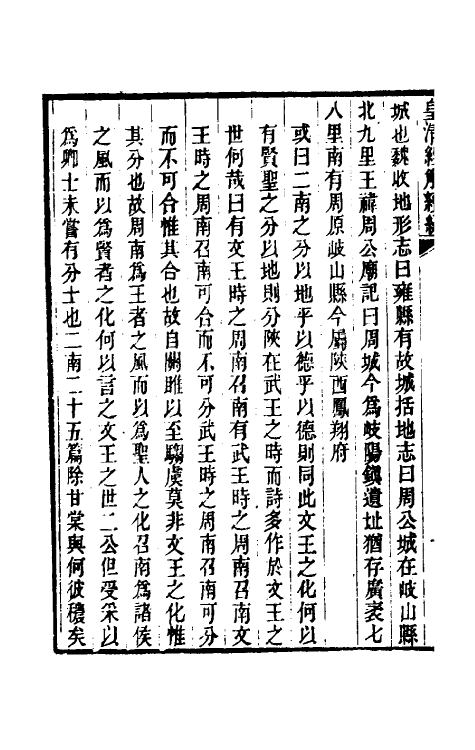 皇清經解續編
城也魏收地形志曰雍縣有故城括地志曰周公城在岐山縣
北九里王禕周公廟記曰周城今爲岐陽鎮遺址猶存廣袤七
八里南有周原岐山縣今屬陜西鳳翔府
或曰二南之分以地乎以德乎以德則同此文王之化何以
有賢聖之分以地則分陜在武王之時而詩多作於文王之
世何哉曰有文王時之周南召南有武王時之周南召南文
王時之周南召南可合而不可分武王時之周南召南可分
而不可合惟其合也故自關雎以至騶虞莫非文王之化惟
其分也故周南爲王者之風而以爲聖人之化召南爲諸侯
之風而以爲賢者之化何以言之文王之世二公但受采以
爲卿士未嘗有分土也二南二十五篇除甘棠與何彼穠矣